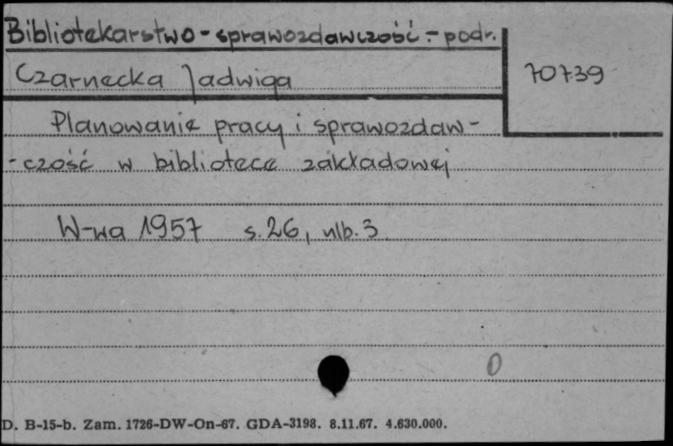 Bibliotekarstwo - sprawozdawczość - podr.
Czarnecka Jadwiga
70739
Planowanie pracy i sprawozdaw-
-czość w bibliotece zakładowej
W-wa 1957 s. 26, nlb. 3
0
D. B-15-b. Zam. 1726-DW-On-67. GDA-3198. 8.11.67. 4.630.000.